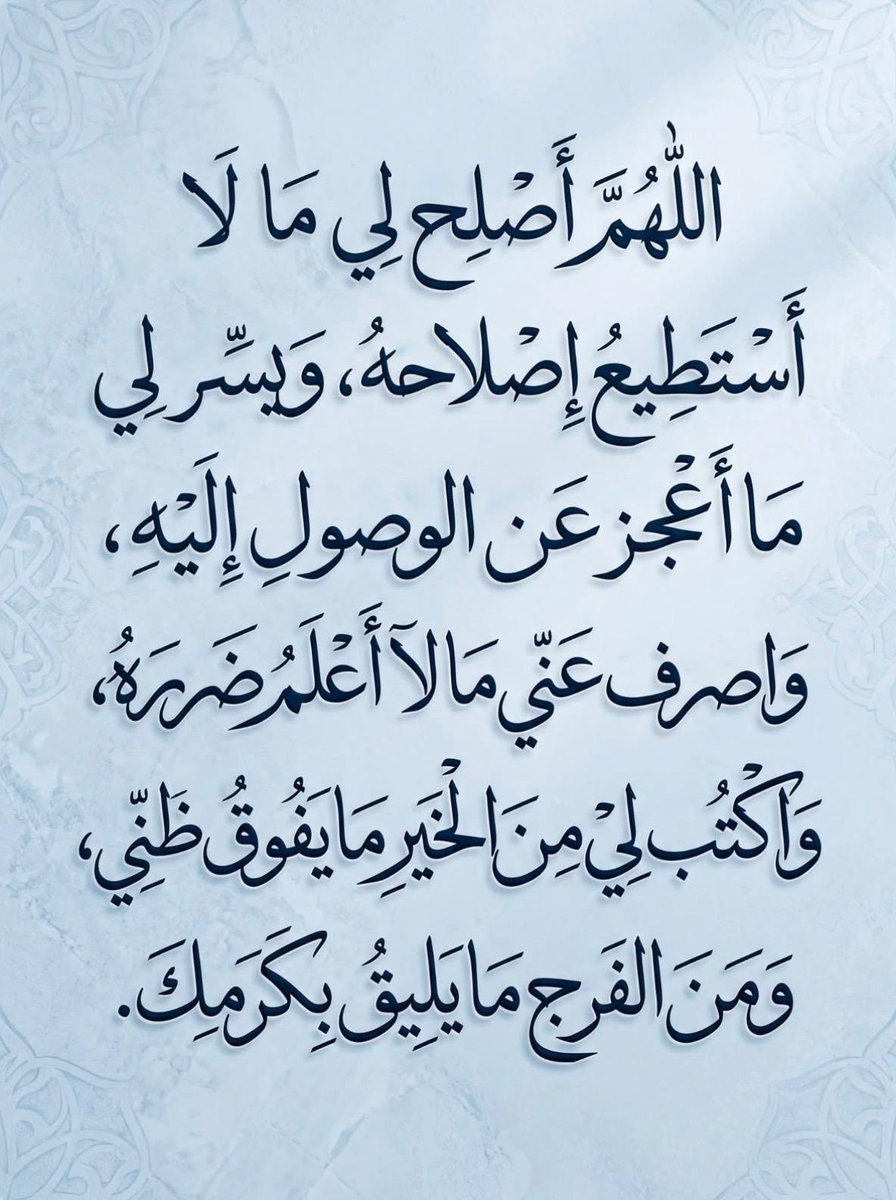 اللّٰهُمَّ أَصْلِح لِي مَا لَا
أَسْتَطِيعُ إِصْلاحهُ، وَيسِّر لِي
مَا أَعْجز عَن الوصولِ إِلَيْهِ،
وَاصرف عَنّي مَا لآ أَعْلَمُ ضَررَهُ،
وَاكْتُب لِيْ مِنَ الْخَيرِ مَا يَفُوقُ ظَنِّي،
وَمَنَ الفَرج مَا يَلِيقُ بِكَرَمِكَ.